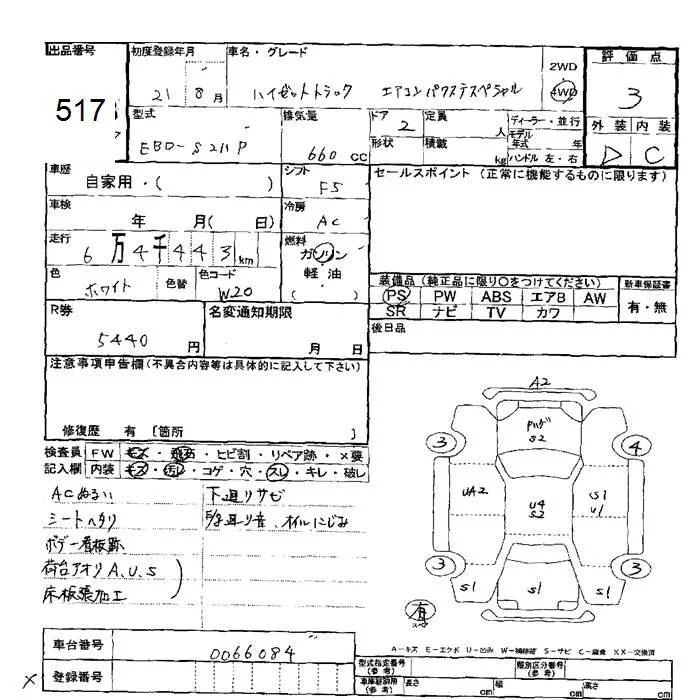 出品番号 初度登録年月 車名・グレード 評価点
517
21 8月 ハイゼットトラック エアコンパワステスペシャル 2WD 4WD 3
型式 排気量 ドア 2 定員 人 ディーラー・並行 外装 内装
EBD-S211P 660 cc 形状 積載 kg モデル年式 年 ハンドル 左・右 D C
車歴 自家用・( ) シフト F5 セールスポイント (正常に機能するものに限ります)
車検 年 月( 日) 冷房 AC
走行 6万4千443km 燃料 ガソリン 軽油 ( )
色 ホワイト 色替 色コード W20
装備品 (純正品に限り○をつけてください) 新車保証書
PS PW ABS エアB AW 有・無
SR ナビ TV カワ
R券 5440 円 名変通知期限 月 日 後日品
注意事項申告欄(不具合内容等は具体的に記入して下さい)
修復歴 有 [箇所 ]
検査員 FW キズ・飛石・ヒビ割・リペア跡・×要
記入欄 内装 キズ・汚レ・コゲ・穴・スレ・キレ・破レ
ACぬるい 下廻りサビ
シートヘタリ 廻り音、オイルにじみ
ボデー看板跡
荷台アオリA、U、S
床板張加工
A2
S2
3 4
UA2 U4 S2 S1 U1
3 3
S1 S1 S1
有
A-キズ E-エクボ U-凹み W-補修跡 S-サビ C-腐食 XX-交換済
車台番号 0066084
型式指定番号(参考) 類別区分番号(参考)
× 登録番号
車庫証明用(参考) 長さ cm 幅 cm 高さ cm